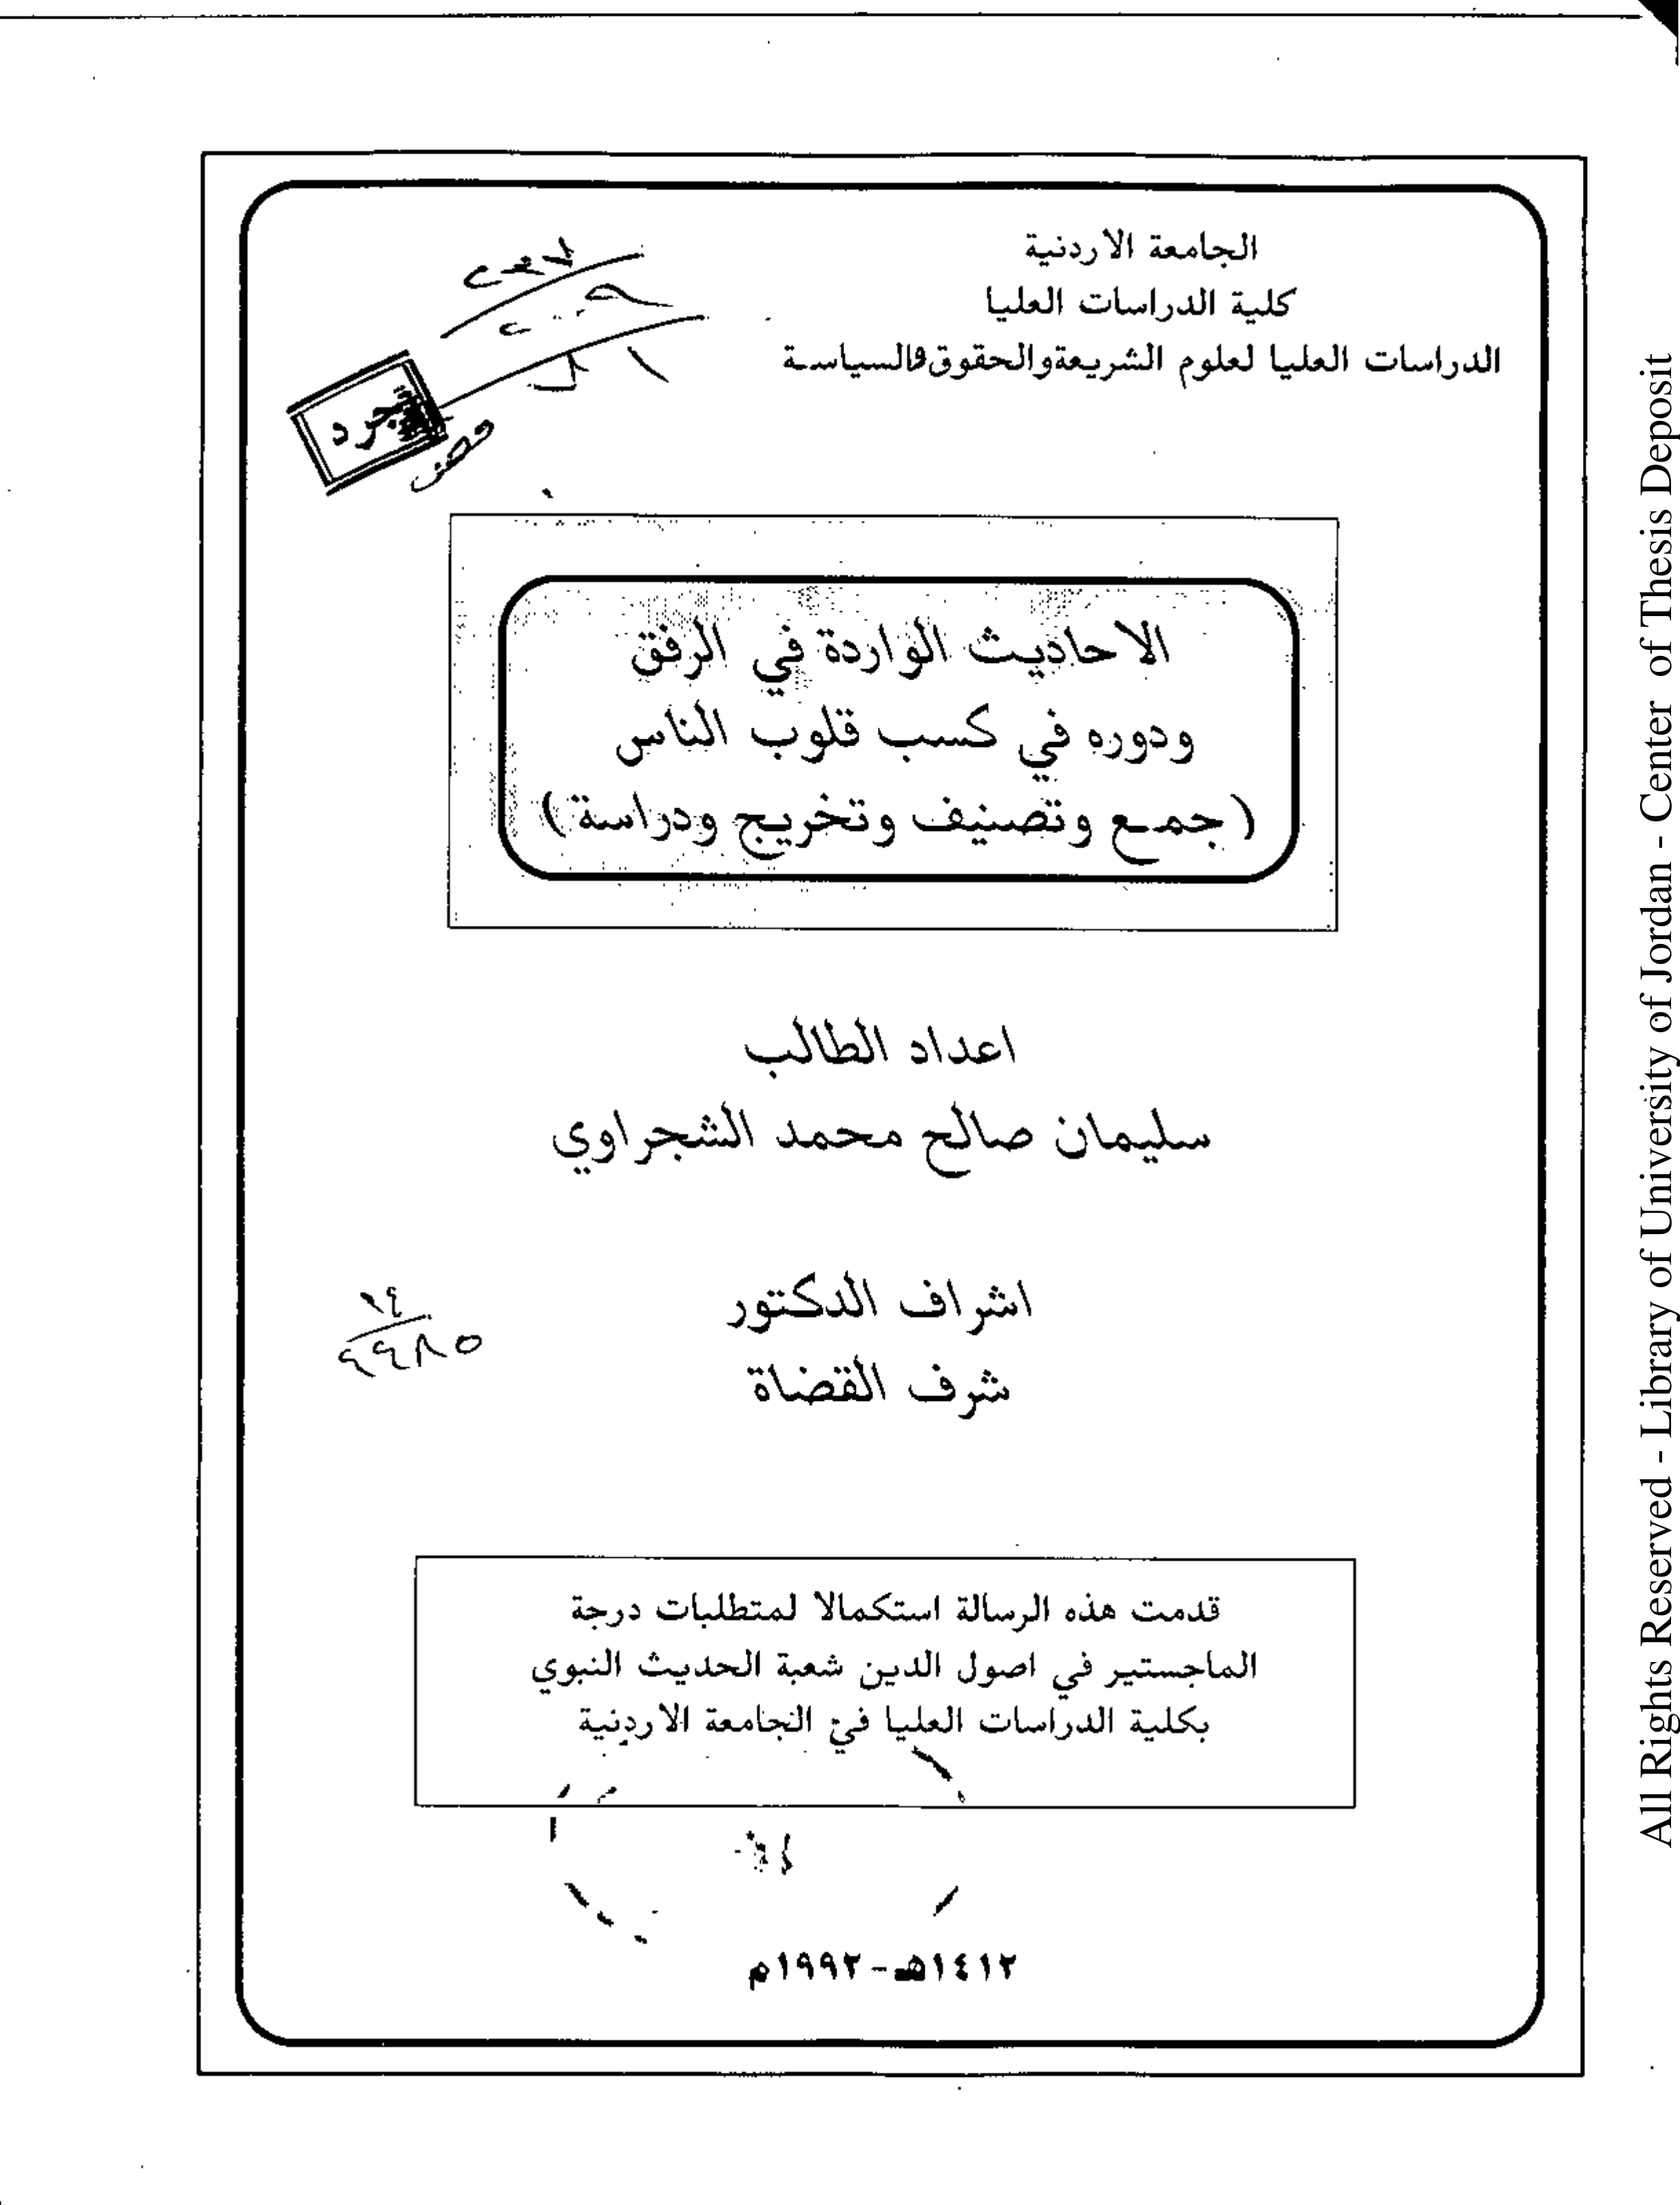 الجامعة الاردنية
كلية الدراسات العليا
الدراسات العليا لعلوم الشريعةوالحقوق والسياسة
تجرد
الاحاديث الواردة في الرفق
ودوره في كسب قلوب الناس
( جمع وتصنيف وتخريج ودراسة )
اعداد الطالب
سليمان صالح محمد الشجراوي
اشراف الدكتور
شرف القضاة
قدمت هذه الرسالة استكمالا لمتطلبات درجة
الماجستير في اصول الدين شعبة الحديث النبوي
بكلية الدراسات العليا في الجامعة الاردنية
١٤١٢هـ-١٩٩٢م
All Rights Reserved - Library of University of Jordan - Center of Thesis Deposit